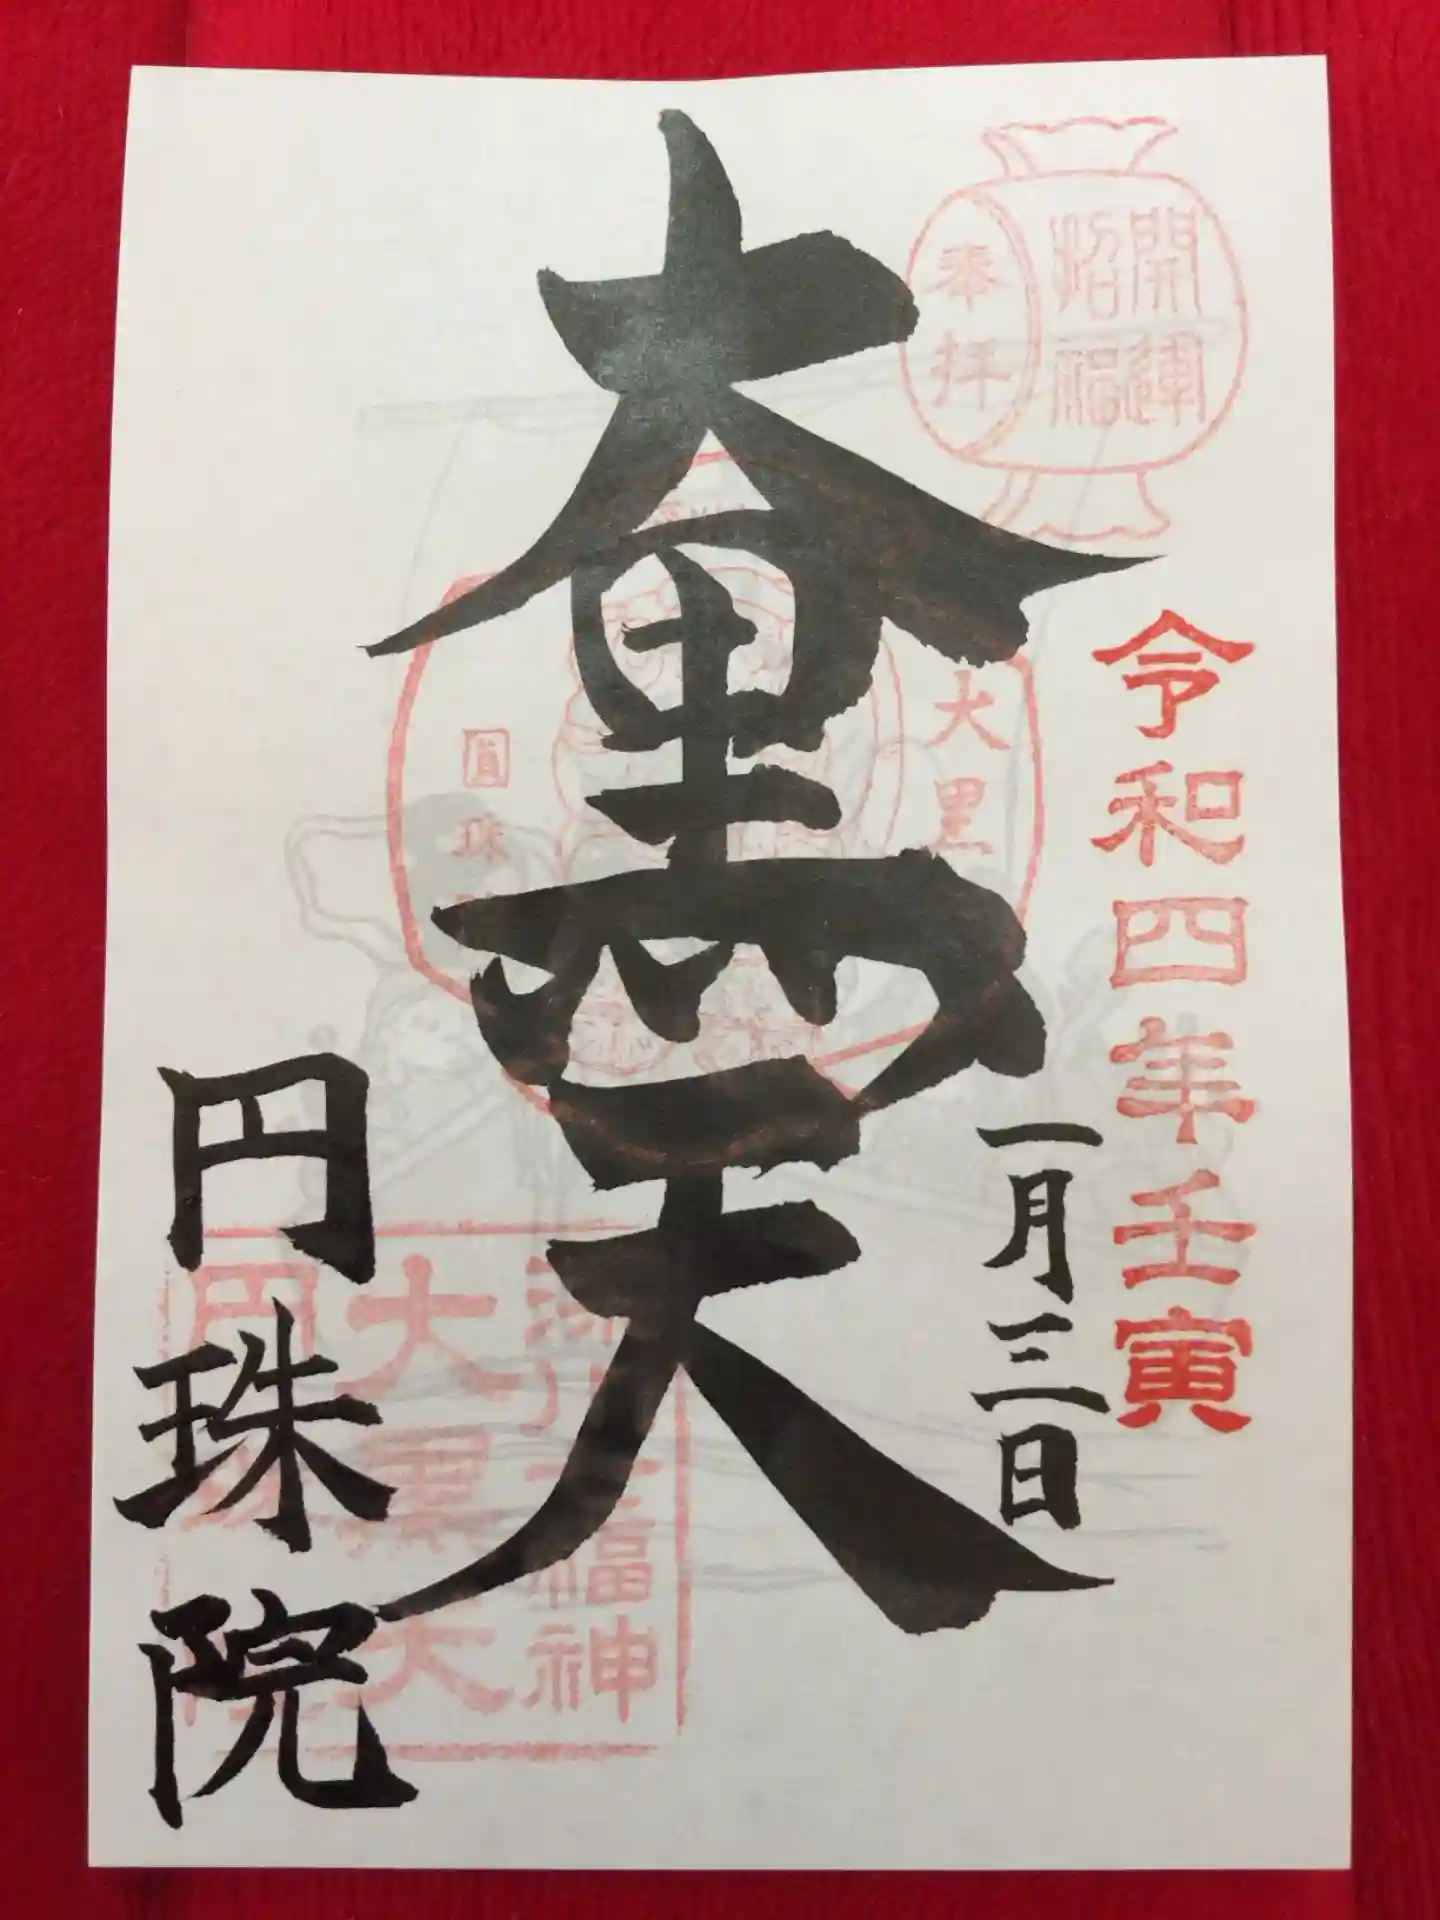 開運
招福
奉拝
令和四年壬寅
一月三日
大黒天
大黒
圓珠
深川七福神
大黒天
円珠院
円珠院